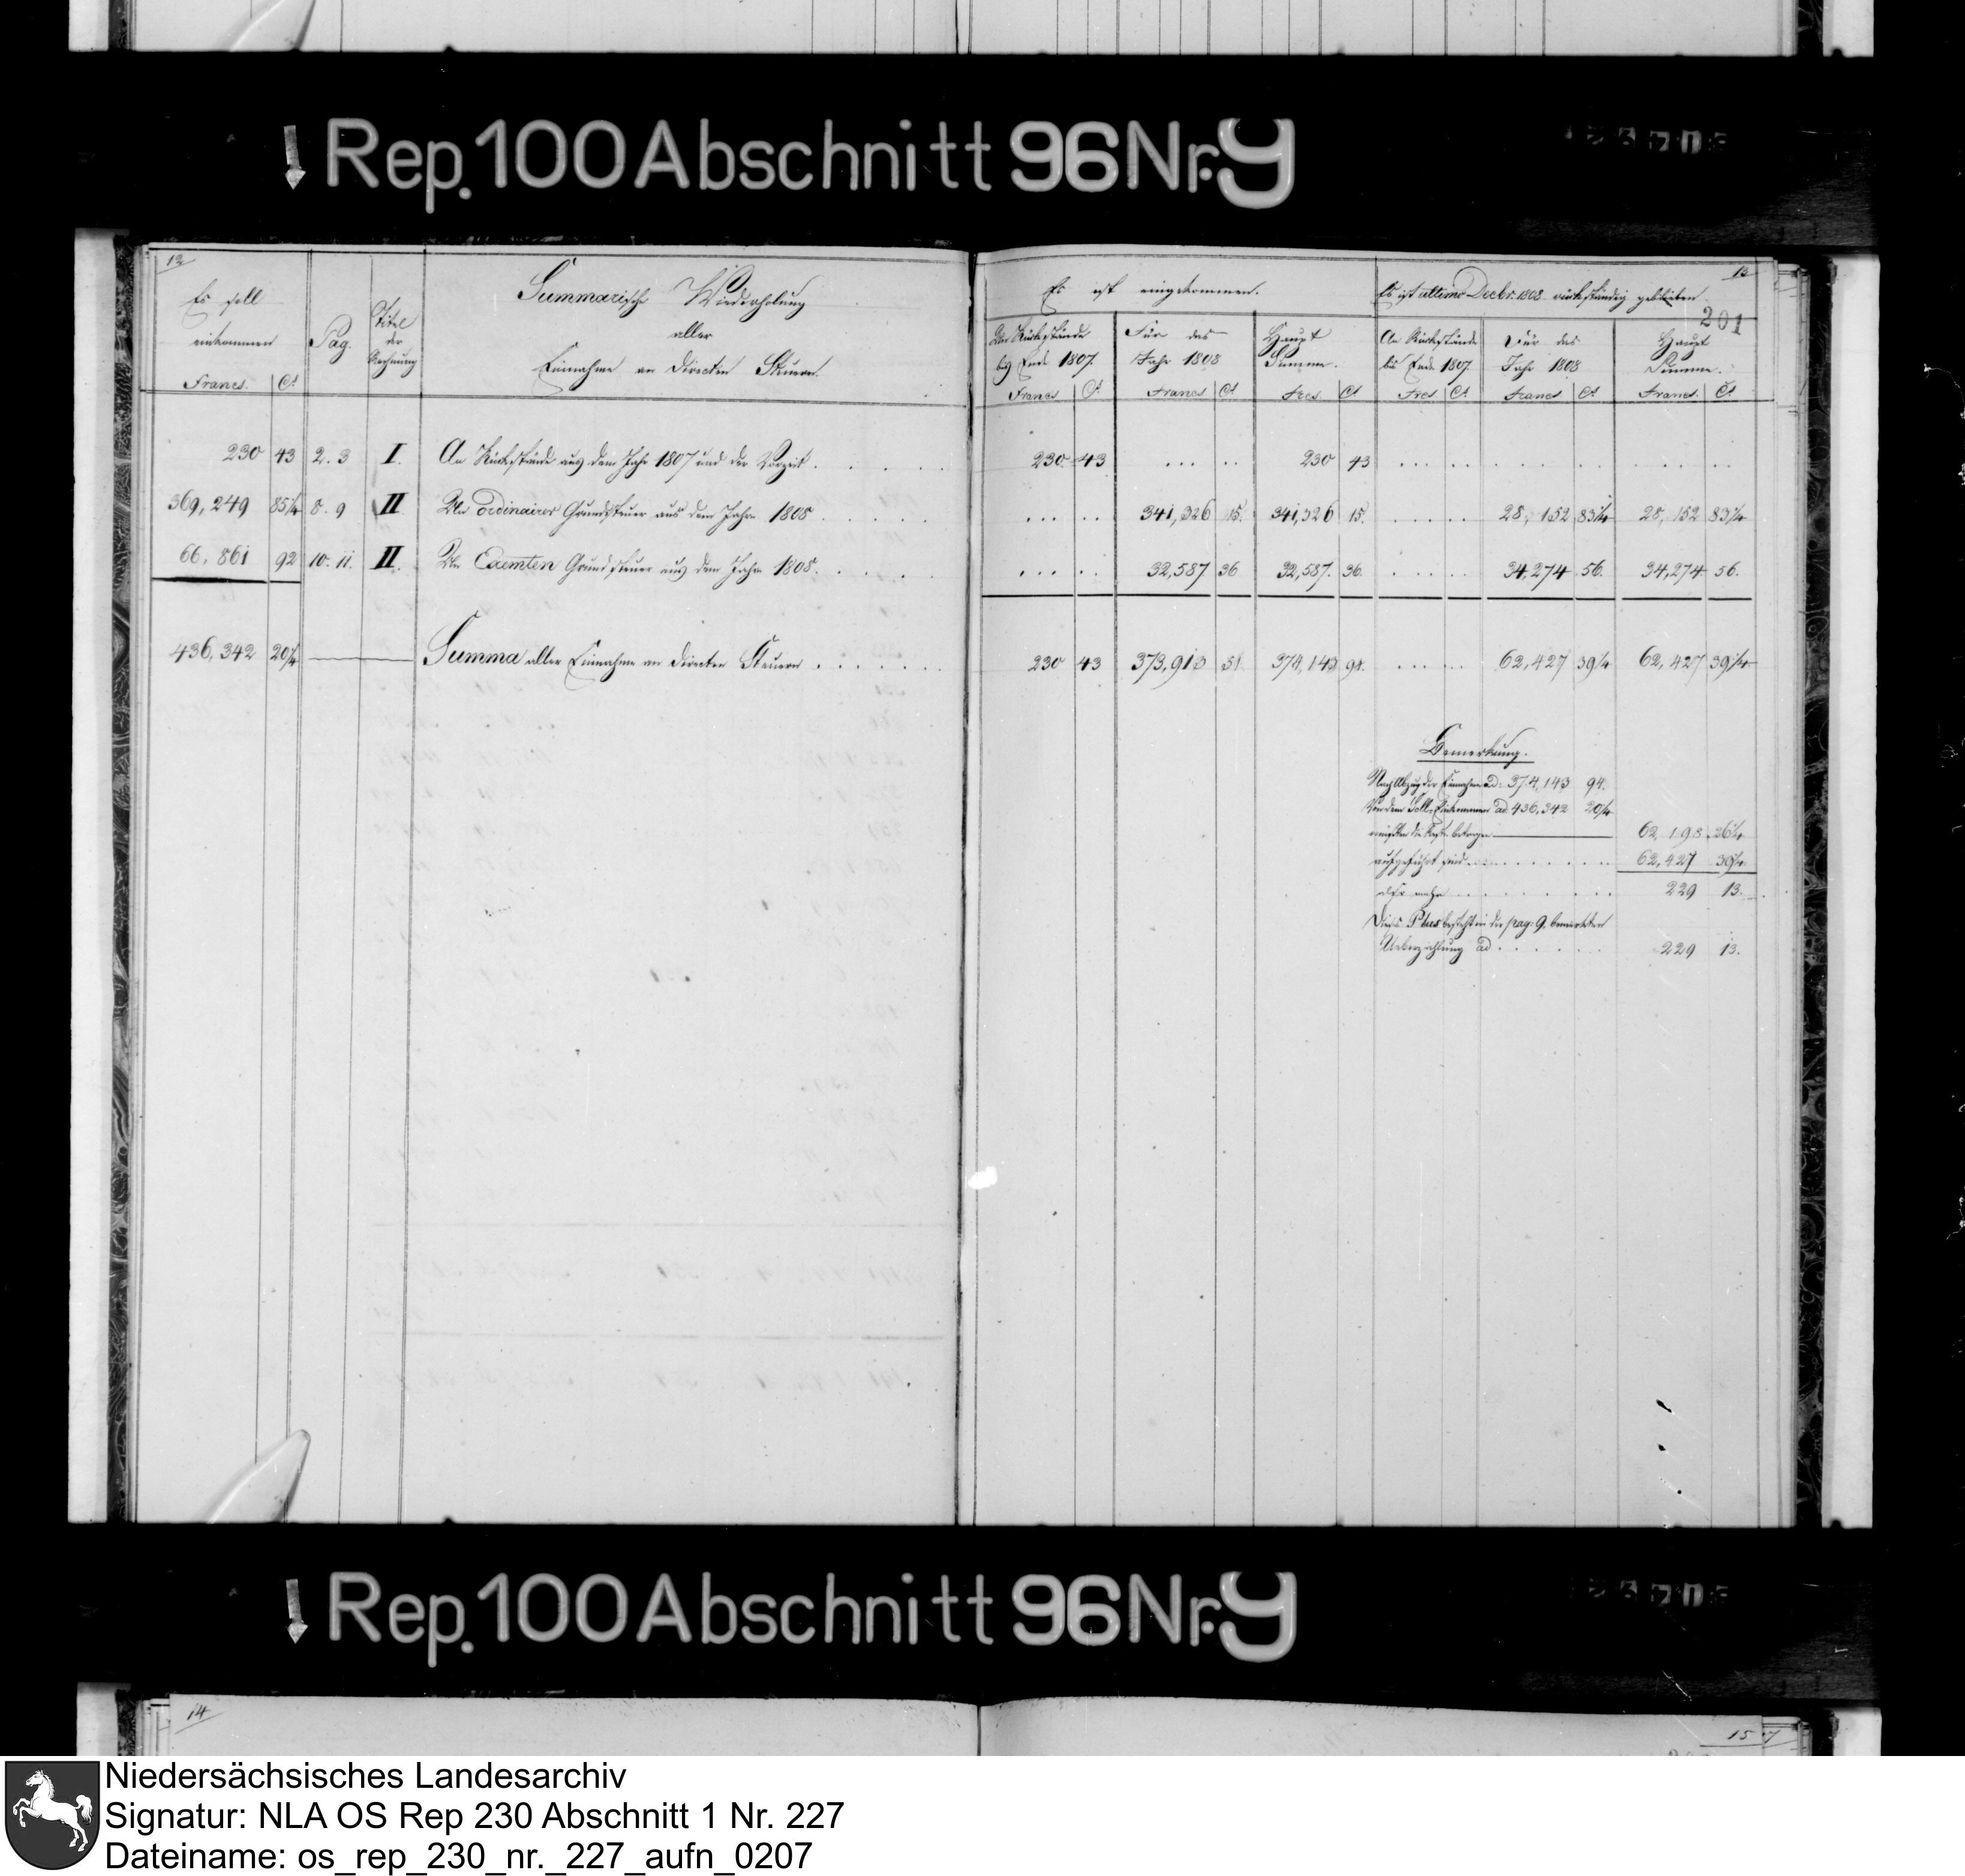 Rep. 100 Abschnitt 96 Nr. 9
12
Es soll
einkommen
Francs. Ct
Pag.
Titel
der
Rechnung
Summarische Wiederholung
aller
Einnahme an Directen Steuern.
230 43 2. 3 I. An Rückstände aus dem Jahr 1807 und der Vorzeit . . . . .
369,249 85 1/4 8. 9 II An ordinairer Grundsteuer aus dem Jahre 1808 . . . . .
66,861 92 10. 11. II. An Exemten Grundsteuer aus dem Jahre 1808. . . . .
436,342 20 1/4 Summa aller Einnahme an directen Steuern . . . . . . .
13
201
Es ist eingekommen.
Es ist ultimo Decbr. 1808 rückständig geblieben.
An Rückstände
bis Ende 1807.
Francs Ct
Für das
Jahr 1808
Francs Ct
Haupt
Summe.
Frcs. Ct
An Rückstände
bis Ende 1807
Frcs Ct
Für das
Jahr 1808
Francs Ct
Haupt
Summe.
Francs. Ct
230 43 ... .. 230 43 ... .. ... .. ... ..
... .. 341,326 15. 341,326 15. ... .. 28,152 83 1/4 28,152 83 1/4
... .. 32,587 36 32,587. 36. ... .. 34,274 56. 34,274 56.
230 43 373,913 51 374,143 94. ... .. 62,427 39 1/4 62,427 39 1/4
Bemerkung.
Nach Abzug der Einnahme ad: 374,143 94.
Von dem Soll-Einkommen ad 436,342 20 1/4
müßten die Reste betragen 62,198 26 1/4
aufgeführt sind . . . . . 62,427 39 1/4
also mehr . . . . . 229 13.
Dieses Plus besteht in der pag: 9. bemerkten
Ueberzahlung ad . . . . . 229 13.
Rep. 100 Abschnitt 96 Nr. 9
14
15
Niedersächsisches Landesarchiv
Signatur: NLA OS Rep 230 Abschnitt 1 Nr. 227
Dateiname: os_rep_230_nr._227_aufn_0207